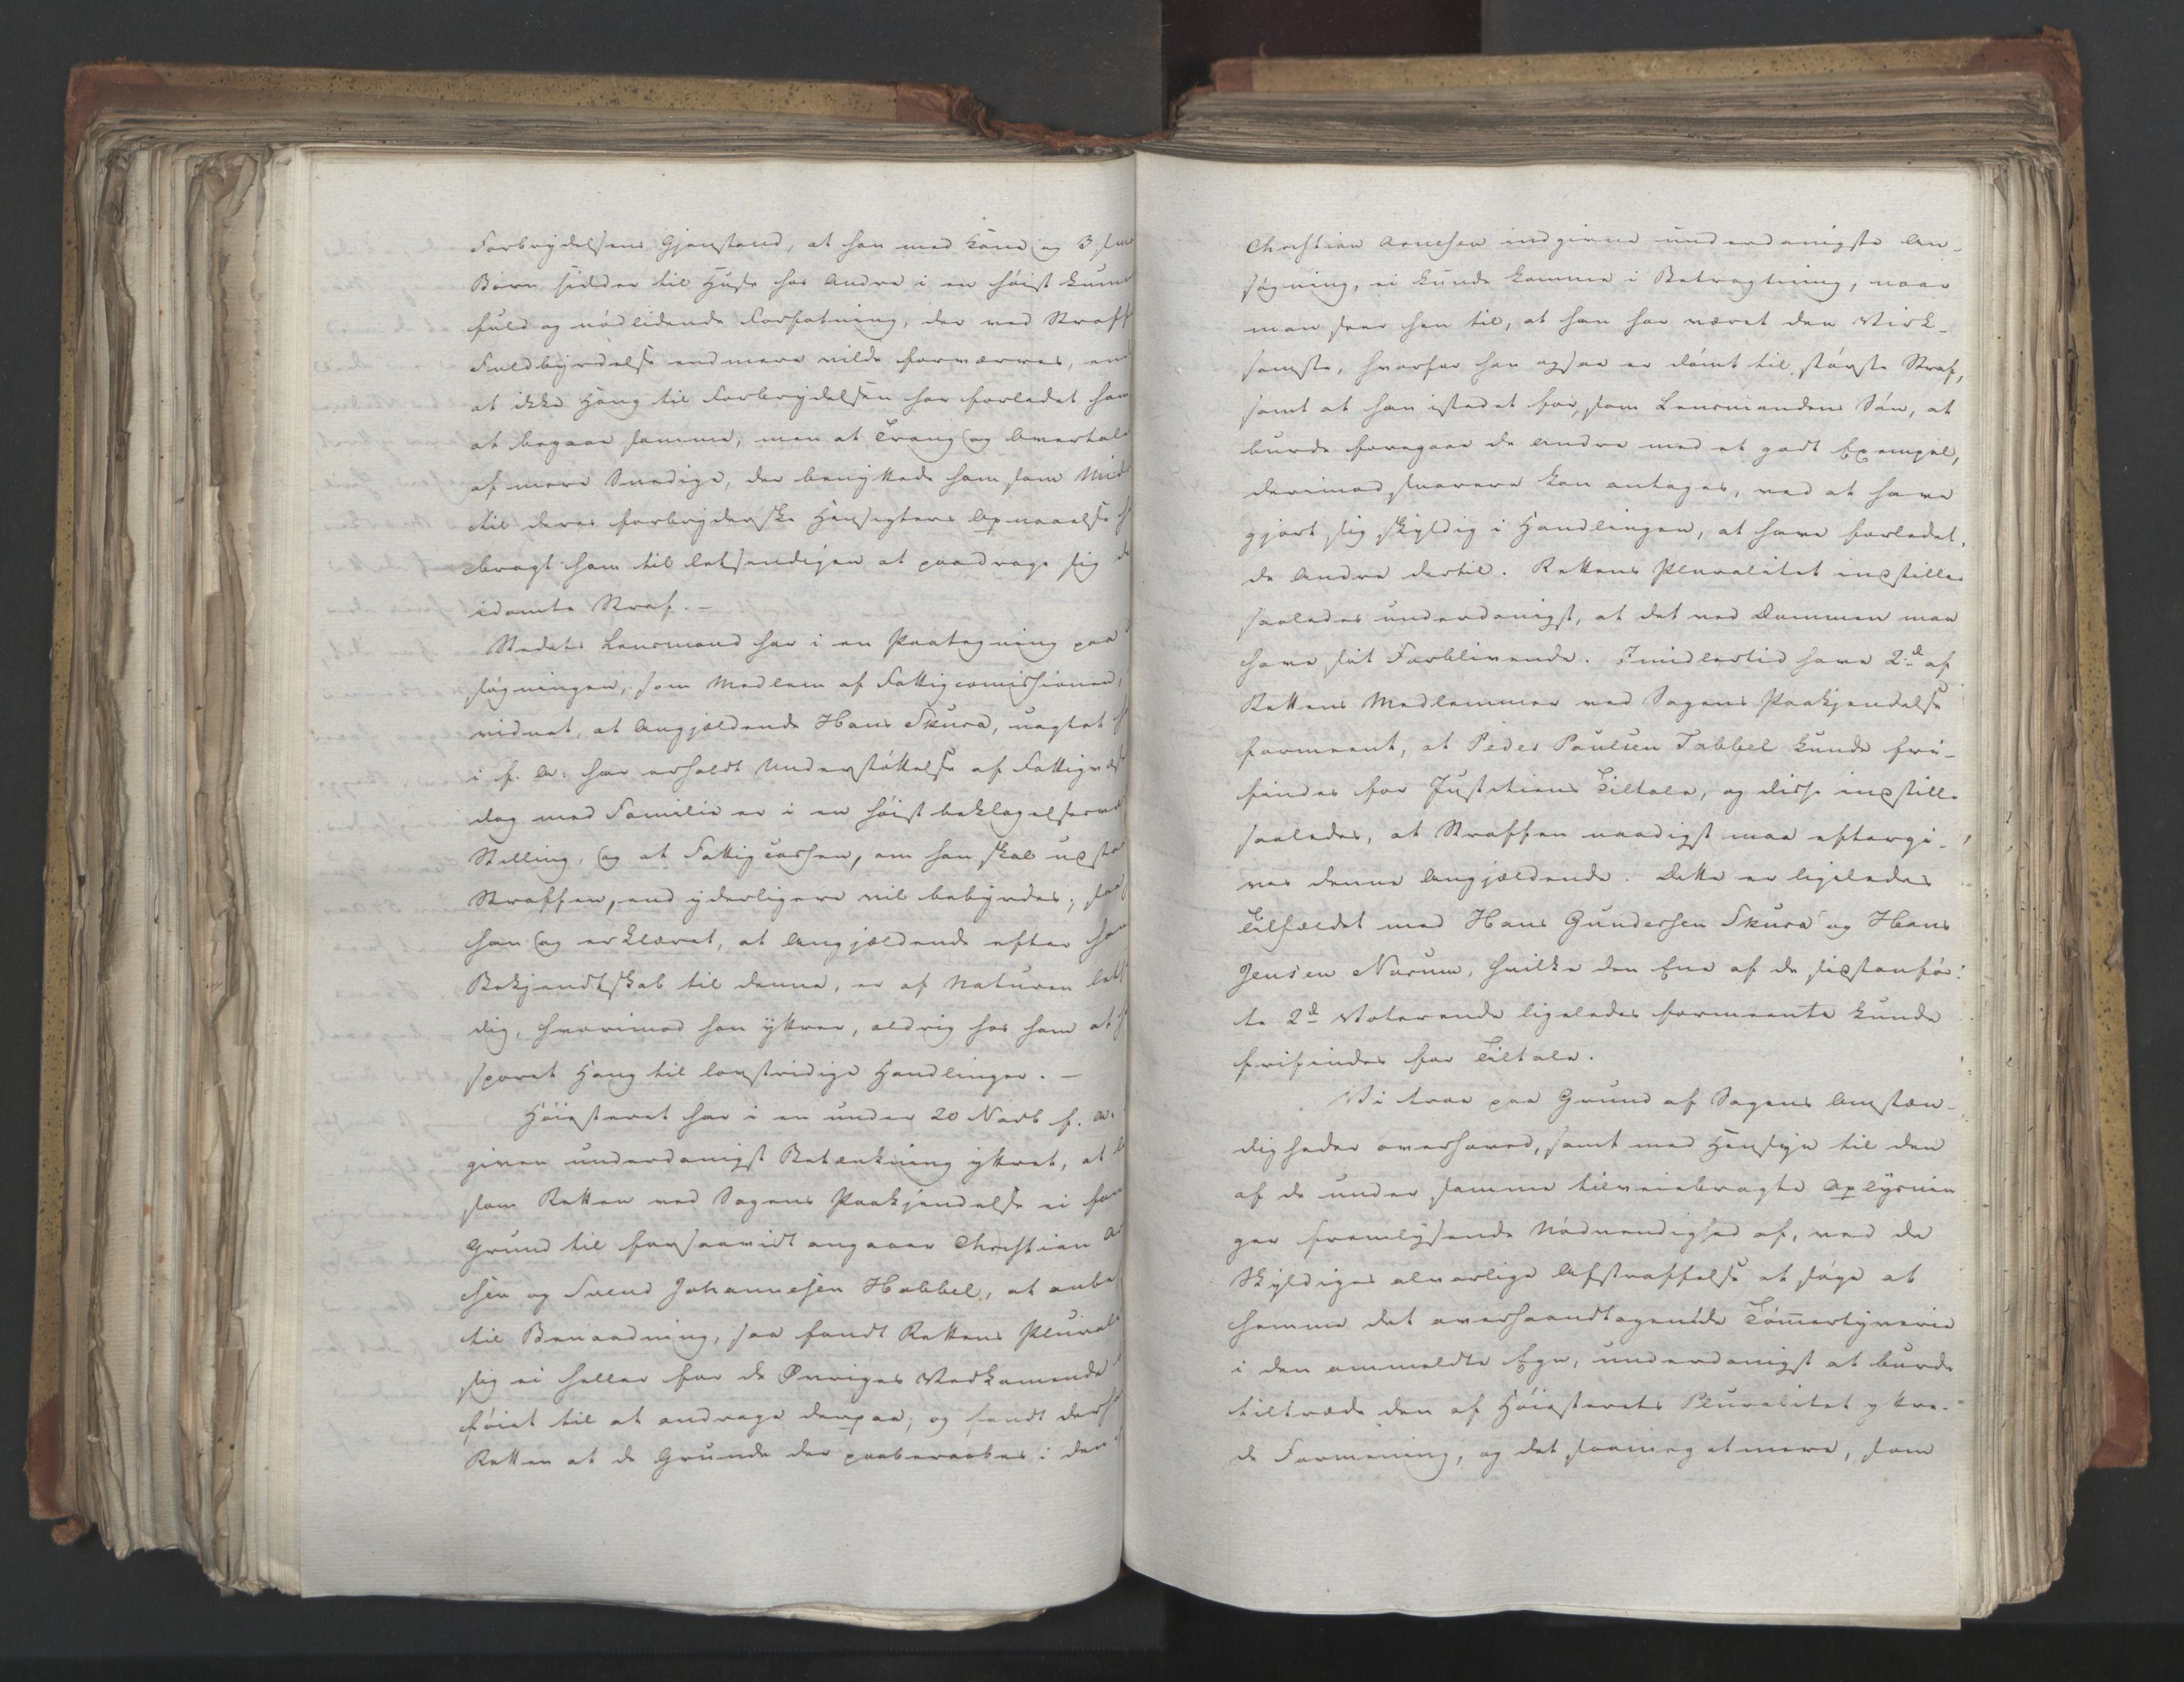 Forbrydelsens Gjenstand, at han med Kone og 3 smaa
Børn sidder til Huse hos Andre i en høist kum
fuld og nødlidende Forfatning, der ved Straff
Fuldbyrdelse end mere vilde forværres, end
at ikke Hang til Forbrydelsen har forledet ham
at begaae samme, men at Trang og Overtale
af mere Snedige, der benyttede ham som Mid
til deres forbryderske Hensigters Opnaaelse h
bragt ham til letsindigen at paadrage sig d
idømte Straf. —
Stedets Lensmand har i en Paategning paa
søgningen, som Medlem af Fattigcomissionen,
vidnet, at Angjældende Hans Skura, uagtet h
i f. A. har erholdt Understøttelse af Fattigvæs
dog med Familie er i en høist beklagelsesvæ
Stilling, og at Fattigcassen, om han skal udstaa
Straffen, end yderligere vil bebyrdes; saa
han og erklæret, at Angjældende efter han
Bekjendtskab til denne, er af Naturen lets
dig, hvorimod han yttrer, aldrig hos ham at h
sporet Hang til lovstridige Handlinger. —
Høiesteret har i en under 20 Novb f. A.
given underdanigst Betænkning yttret, at l
som Retten ved Sagens Paakjendelse ei fan
Grund til forsaavidt angaaer Christian A
sen og Svend Johannesen Habbel, at anbe
til Benaadning, saa fandt Rettens Plurali
sig ei heller for de Øvriges Vedkommende
føiet til at andrage derpaa; og fandt derh
Retten at de Grunde der paaberaabes i den
Christian Arnesen indgivne underdanigste An-
søgning, ei kunde komme i Betragtning, naar
man seer hen til, at han har været den Virk-
somste, hvorfor han ogsaa er dømt til største Straf,
samt at han istedet for, som Lensmandens Søn, at
burde foregaae de Andre med et godt Exempel,
derimod snarere kan antages, ved at have
gjort sig skyldig i Handlingen, at have forledet
de Andre dertil. Rettens Pluralitet indstiller
saaledes underdanigst, at det ved Dommen maa
have sit Forblivende. Imidlertid have 2de af
Rettens Medlemmer ved Sagens Paakjendelse
formeent, at Peder Paulsen Tabbel kunde fri-
findes for Justitiens Tiltale, og disse indstille
saaledes, at Straffen naadigst maa eftergi-
ves denne Angjældende. Dette er ligeledes
Tilfældet med Hans Gundersen Skura og Hans
Jensen Narum, hvilke den Ene af de sidstanfør-
te 2de Voterende ligeledes formeente kunde
frifindes for Tiltale.
Vi troe paa Grund af Sagens Omstæn-
digheder overhoved, samt med Hensyn til den
af de under samme tilveiebragte Oplysnin
ger fremlysende Nødvendighed af, ved de
Skyldiges alvorlige Afstraffelse at søge at
hemme det overhaandtagende Tømmertyverie
i den ommeldte Egn, underdanigst at burde
tiltræde den af Høiesterets Pluralitet yttre-
de Formening, og det saameget mere, som